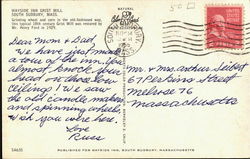 WAYSIDE INN GRIST MILL
SOUTH SUDBURY, MASS.
Grinding wheat and corn in the old-fashioned way,
this typical 18th century Grist Mill was restored by
Mr. Henry Ford in 1929.
Dear Mom & Dad,
We have just made
a tour of the inn. You
almost knock your
head on those low
ceilings! We saw
the old candle making
and spinning articles.
Wish you were here.
Love
Russ
NATURAL
POST CARD
Mr. & Mrs. Arthur Seibert
67 Perkins Street
Melrose 76
Massachusetts
54635
PUBLISHED FOR WAYSIDE INN, SOUTH SUDBURY, MASSACHUSETTS